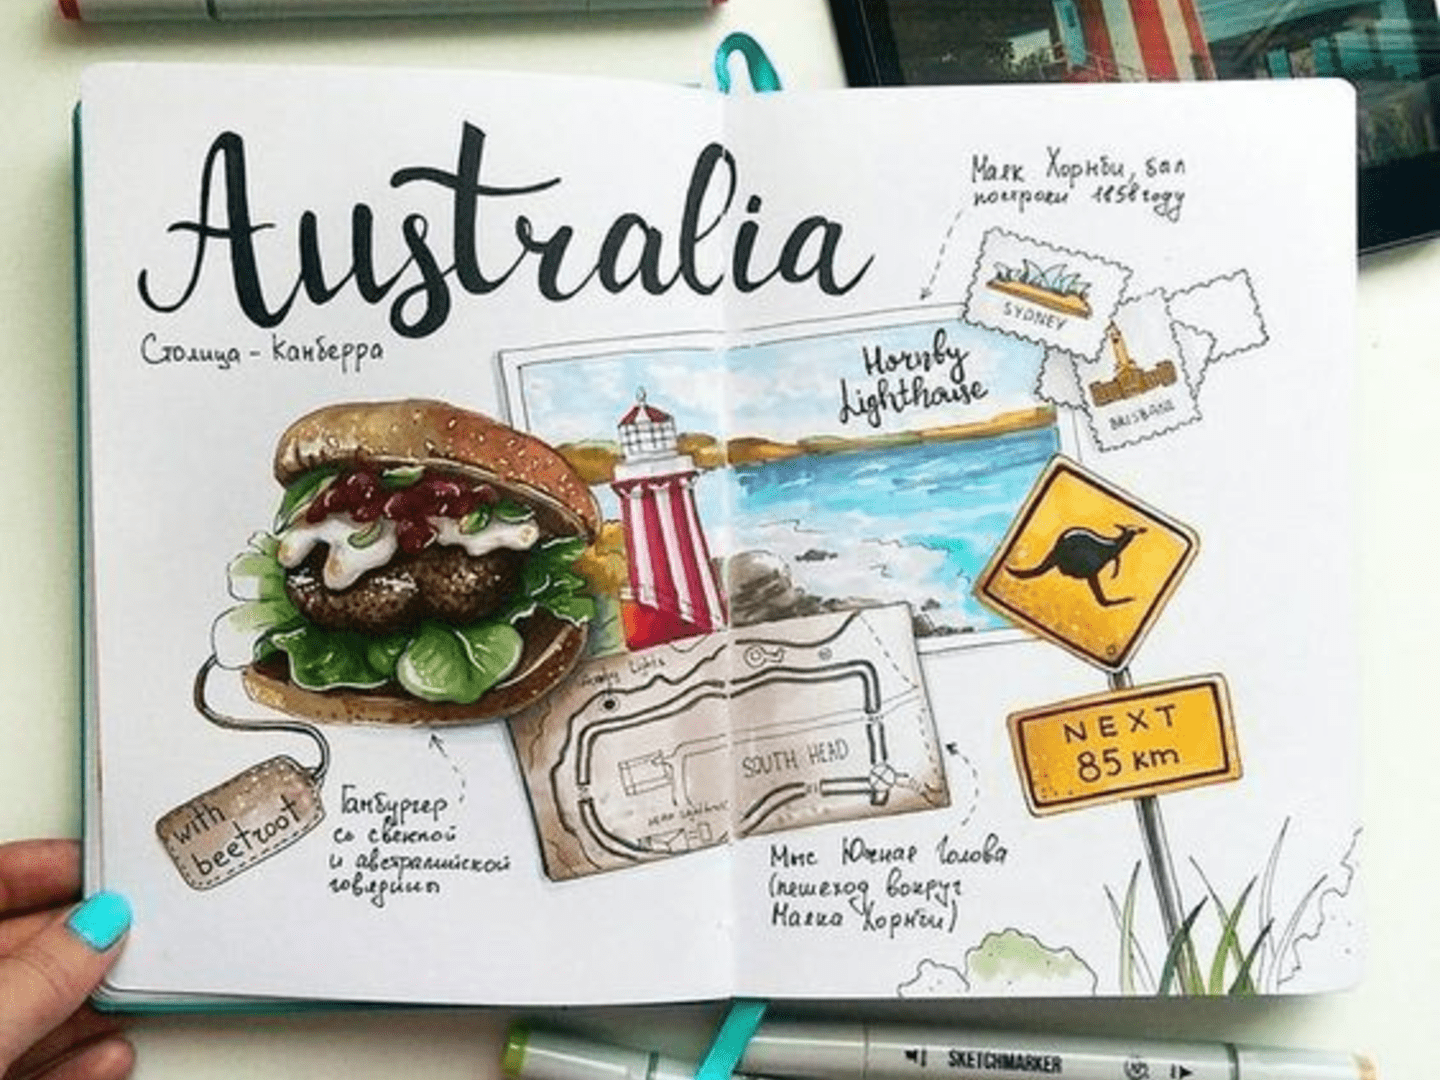 Australia
Столица - Канберра
Маяк Хорнби, был
построен 1858 году
SYDNEY
BRISBANE
Hornby
Lighthouse
NEXT
85 km
Hornby Lights
SOUTH HEAD
with
beetroot
Гамбургер
со свеклой
и австралийской
говядины
Мыс Южная Голова
(пешеход вокруг
Маяка Хорнби)
SKETCHMARKER